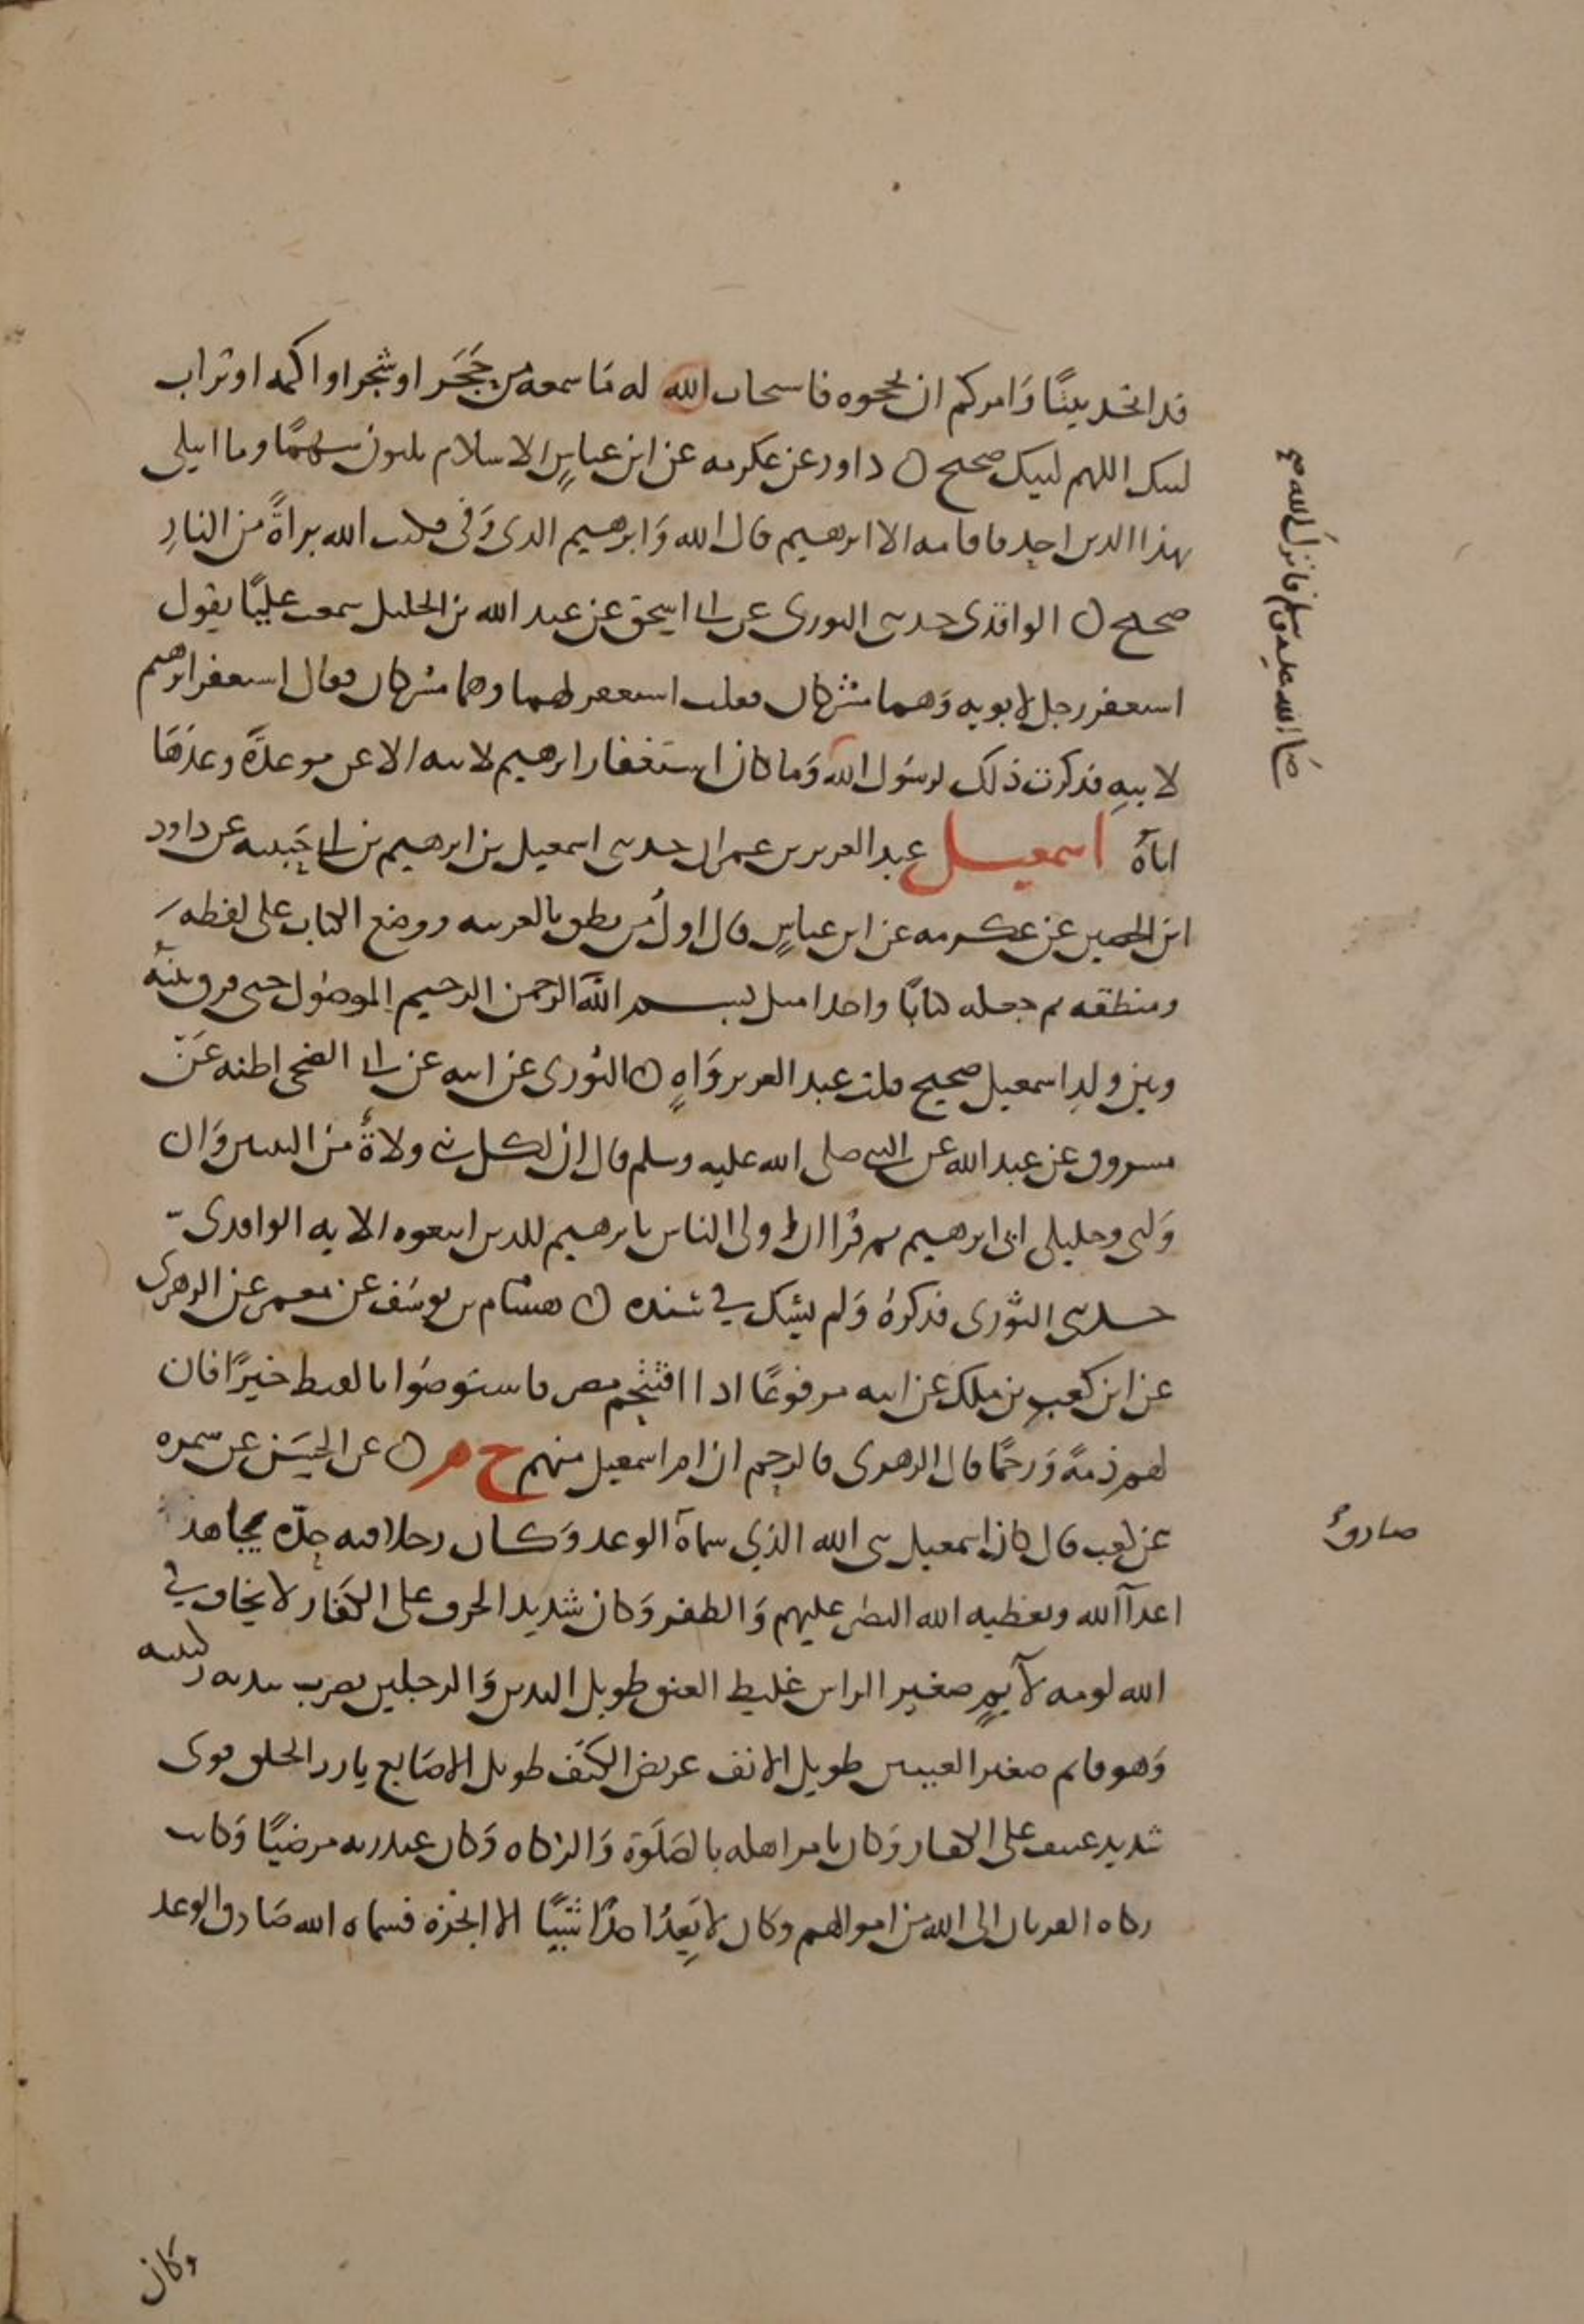 قد اتخد بيتًا وَامركم ان تحجوه فاستجاب الله له مَا سمعه من حَجَر او شجر او اكمه او تراب
لبيك اللهم لبيك صحيح ن داود عن عكرمه عن ابن عباسٍ الاسلام ثلثون سهمًا وما ابتلى
بهذا الدين احد فاقامه الا ابرهيم قال الله وَابرهيم الدى وَفى فكتب الله براةً من النارِ
صحيح ن الواقدى حدثنى الثورى عن ابى اسحق عن عبد الله بن الخليل سمعت عليًا يقول
استغفر رجل لابويه وَهما مشركان فقلت استغفر لهما وهما مشركان فقال استغفر ابرهيم
لابيهِ فذكرت ذلك لرسُول الله وَما كان استغفار ابرهيم لابيه الا عن موعدةً وعدَهَا
اياهُ اسمعيل عبد العزيز بن عمران حدثنى اسمعيل بن ابرهيم بن ابى حَبيبه عن داود
ابن الحصين عن عكرمه عن ابن عباسٍ قال اولُ من نطق بالعربيه ووضع الكتاب على لفظه
ومنطقه ثم جعله كتابًا واحدا مثل بسم الله الرحمن الرحيم الموصُول حتى فرق بينهُ
وبين ولدِ اسمعيل صحيح قلت عبد العزيز وَاهٍ ن الثورى عن ابيه عن ابى الضحى اظنه عَن
مسروق عن عبد الله عن النبى صلى الله عليه وسلم قال ان لكل نبى ولاةً من النبيين وَان
وَلى وخليلى ابى ابرهيم ثم قرا ان اولى الناس بابرهيم للدين اتبعوه الايه الواقدى
حدثنى الثورى فذكرهُ وَلم يشك في سنده ن هشام بن يوسُف عن معمر عن الزهرى
عن ابن كعبِ بن ملك عن ابيه مرفوعًا اذا افتتحتم مصر فاستوصُوا بالقبط خيرًا فان
لهم ذمةً وَرحمًا قال الزهرى فالرحم ان ام اسمعيل منهم خ م ن عن الحسَن عن سمره
عن كعب قال كان اسمعيل نبى الله الذي سماهُ الوعد وَكان رجلا فيه حِدّه يجاهد
اعدآ الله ويعطيه الله النصر عليهم وَالظفر وَكان شديد الحرب على الكفَار لا يخاف في
الله لومه لآيمٍ صغير الراس غليظ العنق طويل اليدين وَالرجلين يضرب بيديه ركبتيه
وَهو قايم صغير العينين طويل الانف عريض الكتف طويل الاصَابع بارز الخلق قوى
شديد عنيف على الكفار وَكان يامر اهله بالصَلَوة وَالزكاه وَكان عند ربه مرضيًا وَكانت
زكاه القربان الى الله من اموالهم وكان لا يَعِدُ احدًا شيئًا الا انجزه فسماه الله صَادق الوعد
صَلى الله عليه وسلم فانزل الله صح
صادق
وكان